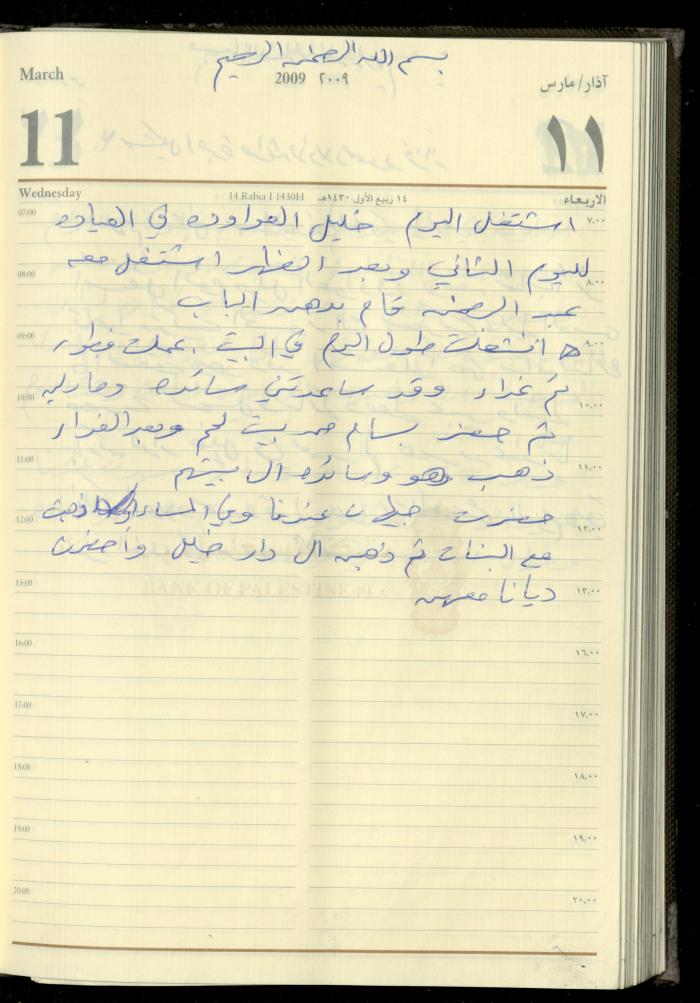 بسم الله الرحمن الرحيم
March
2009 ٢٠٠٩
آذار/مارس
11
١١
Wednesday
14 Rabia I 1430H
١٤ ربيع الأول ١٤٣٠هـ
الاربعاء
07:00 ٧,٠٠
اشتغل اليوم خليل العواوده في العياده
لليوم الثاني وبعد الظهر اشتغل معه
08:00 ٨,٠٠
عبد الرحمن قام بدهن الباب
09:00 ٩,٠٠
انشغلت طول اليوم في البيت . عملت فطور
ثم غداء وقد ساعدتني سائده وماريه
10:00 ١٠,٠٠
ثم حضر بسام من بيت لحم وبعد الغداء
11:00 ١١,٠٠
ذهب وهو وسائده الى بيتهم
12:00 ١٢,٠٠
حضرت جيهان عندنا وفي المساء ذهبت
مع البنات ثم ذهبن الى دار خليل وأحضرن
13:00 ١٣,٠٠
ديانا معهن
BANK OF PALESTINE P.L.C
16:00 ١٦,٠٠
17:00 ١٧,٠٠
18:00 ١٨,٠٠
19:00 ١٩,٠٠
20:00 ٢٠,٠٠